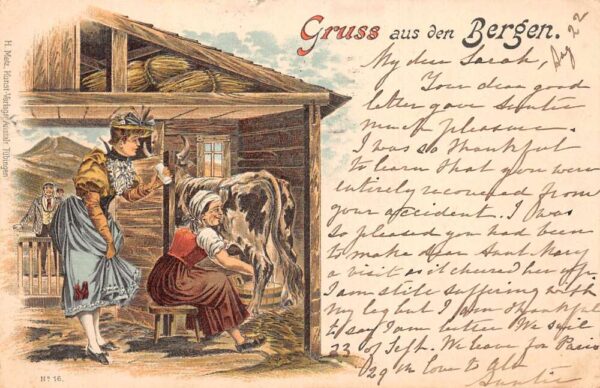 Gruss aus den Bergen.
Aug 22
My dear Sarah,
Your dear good
letter gave Auntie
much pleasure.
I was so thankful
to learn that you were
entirely recovered from
your accident. I was
so pleased you had been
to make dear Aunt Mary
a visit as it cheered her up.
I am still suffering with
my leg but I am thankful
to say I am better We sail
23 of Sept. We leave for Paris
29 in love to all
Auntie
H. Metz, Kunst-Verlags-Anstalt Tübingen
No 16.